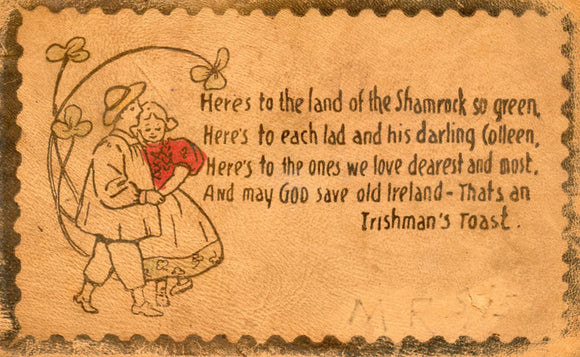 Heres to the land of the Shamrock so green,
Here's to each lad and his darling Colleen,
Here's to the ones we love dearest and most.
And may GOD save old Ireland - Thats an
Irishman's Toast.